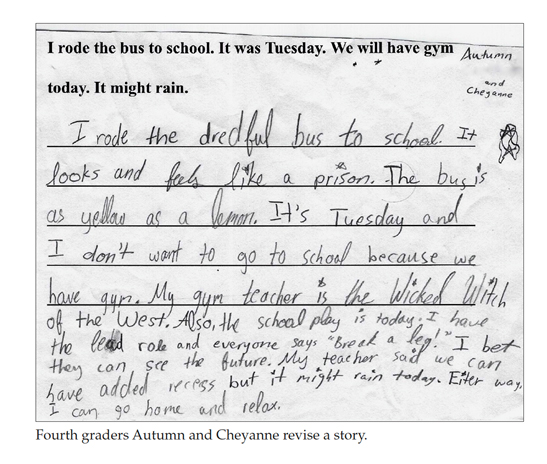 I rode the bus to school. It was Tuesday. We will have gym
Autumn
today. It might rain.
and
Cheyanne
I rode the dredful bus to school. It
looks and feels like a prison. The bus is
as yellow as a lemon. It's Tuesday and
I don't want to go to school because we
have gym. My gym teacher is the Wicked Witch
of the West. Also, the school play is today. I have
the lead role and everyone says "Break a leg!" I bet
they can see the future. My teacher said we can
have added recess but it might rain today. Eiter way,
I can go home and relax.
Fourth graders Autumn and Cheyanne revise a story.